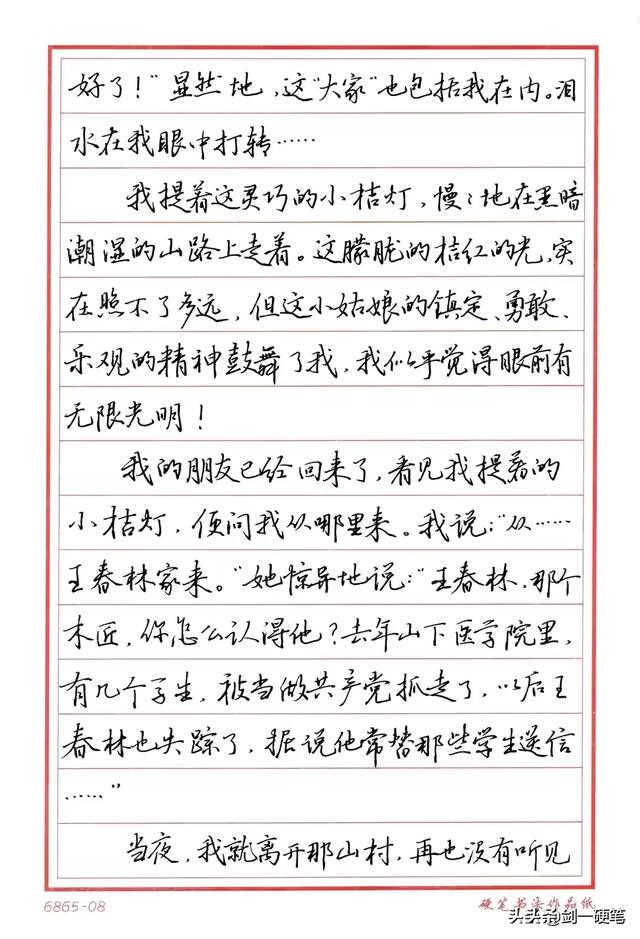 好了！”显然地，这“大家”也包括我在内。泪
水在我眼中打转……
我提着这灵巧的小桔灯，慢慢地在黑暗
潮湿的山路上走着。这朦胧的桔红的光，实
在照不了多远，但这小姑娘的镇定、勇敢、
乐观的精神鼓舞了我，我似乎觉得眼前有
无限光明！
我的朋友已经回来了，看见我提着的
小桔灯，便问我从哪里来。我说：“从……
王春林家来。”她惊异地说：“王春林，那个
木匠，你怎么认得他？去年山下医学院里，
有几个学生，被当做共产党抓走了，以后王
春林也失踪了，据说他常替那些学生送信
……”
当夜，我就离开那山村，再也没有听见
6865-08
硬笔书法作品纸
头条@剑一硬笔